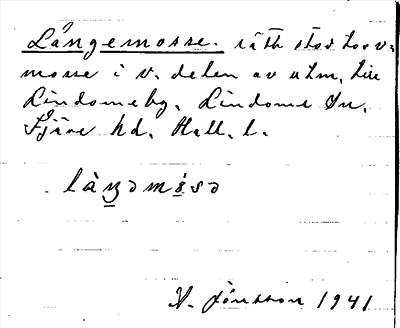 Långemosse. rätt stor torv-
mosse i v. delen av utm. till
Lindomeby, Lindome sn,
Fjäre hd, Hall. l.
làŋəmɷsə
V. Jönsson 1941